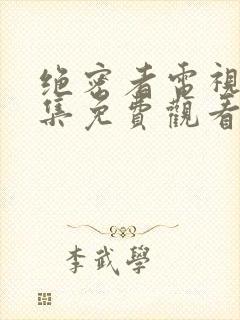 绝密者電視
集免費觀看
李武學